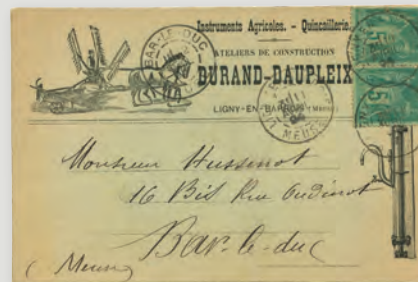 Instruments Agricoles. - Quincaillerie.
ATELIERS DE CONSTRUCTION
DURAND-DAUPLEIX
LIGNY-EN-BARROIS (MEUSE)
BAR-LE-DUC
MEUSE
5
5
Monsieur Hussenot
16 Bis Rue Oudinot
Bar-le-duc
(Meuse)